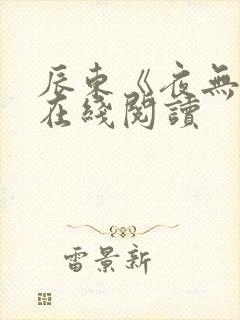 辰東《夜無
在綫閱讀
雷景新